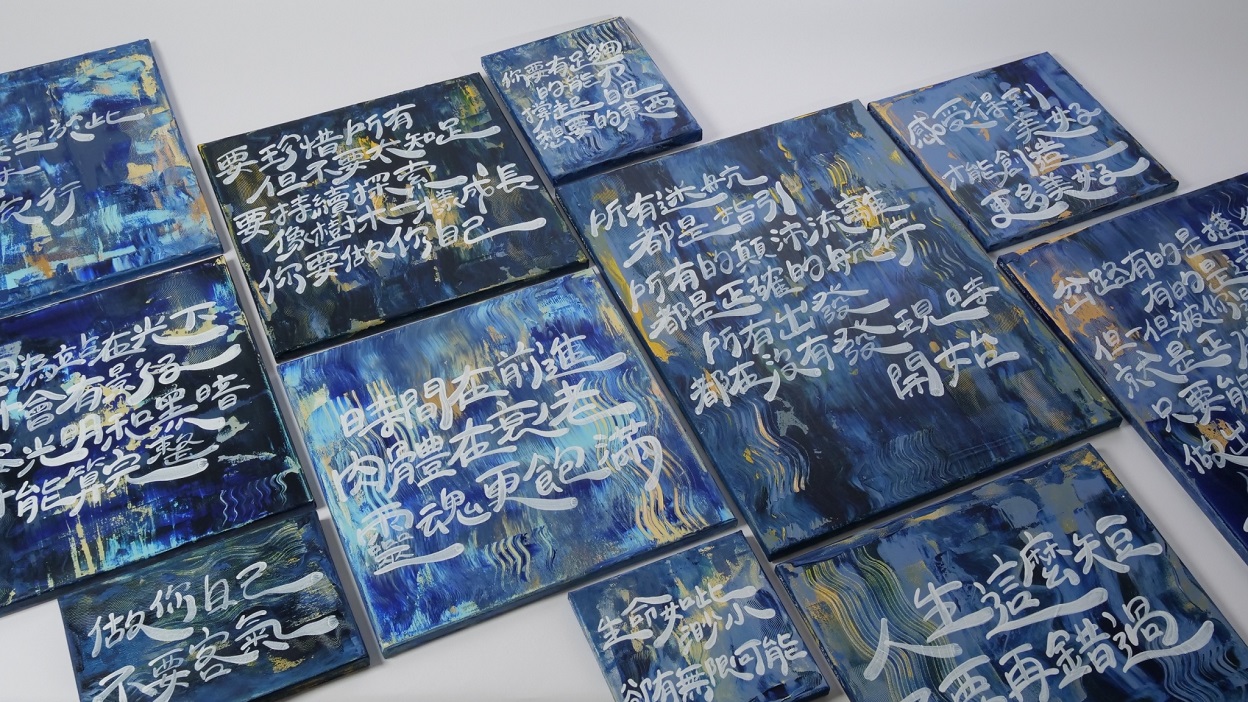 生於此
行
要珍惜所有
但不要太知足
要持續探索
像樹木一樣成長
你要做你自己
你要有足夠
的能力
撐起自己
想要的東西
所有迷航
都是指引
所有的顛沛流離
都是正確的航行
所有出發
都在沒有發現時
開始
感受得到
美好
才能創造
更多美好
岔路有的是
有的是
但一但被你
就是正
只要能
做出
為站在光下
會有影子
光明和黑暗
才能算完整
時間在前進
肉體在衰老
靈魂更飽滿
做你自己
不要客氣
生命如此
渺小
卻有無限可能
人生這麼短
不要再錯過